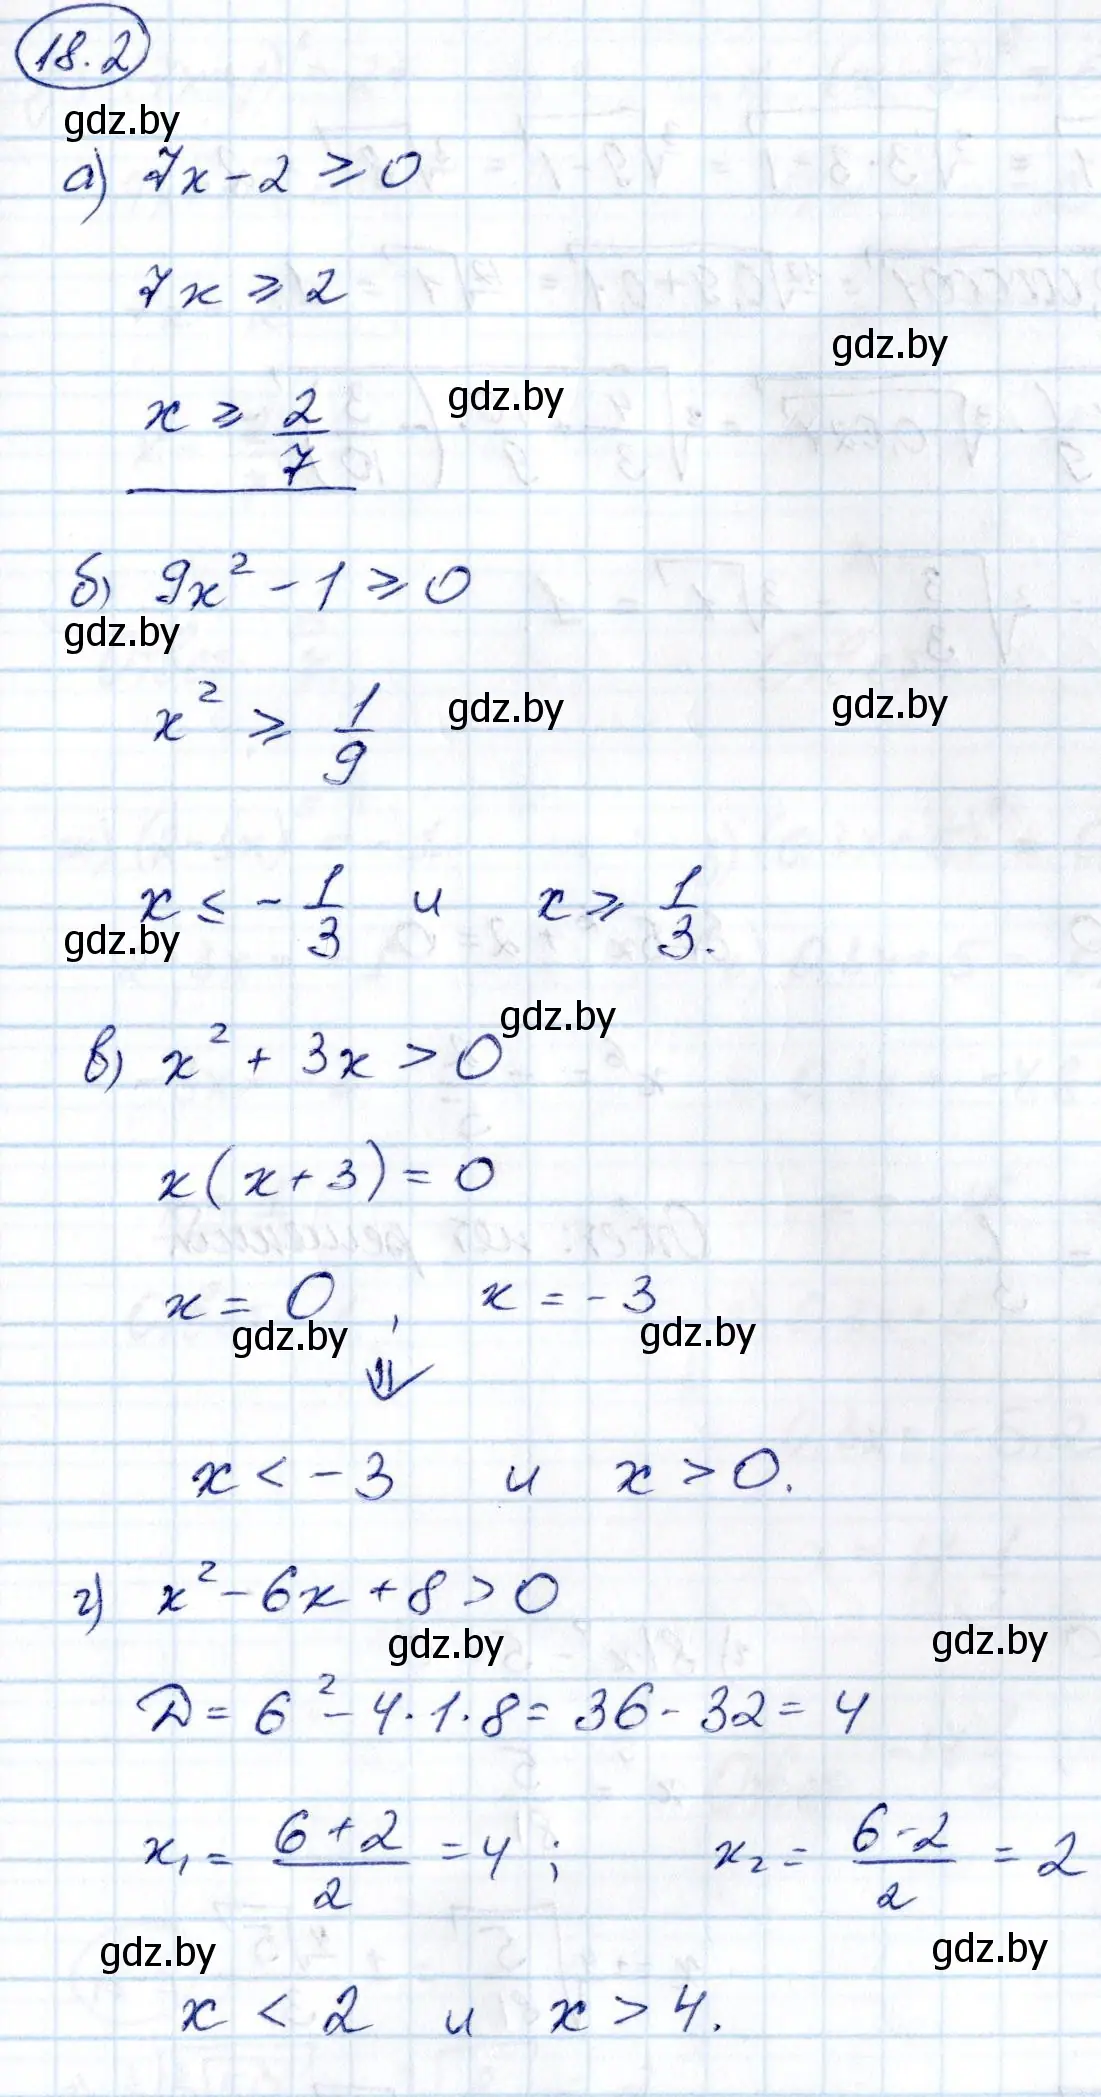 18.2
gdz.by
а) 7x - 2 ⩾ 0
7x ⩾ 2
gdz.by
x ⩾ 2/7
gdz.by
б) 9x² - 1 ⩾ 0
gdz.by
x² ⩾ 1/9
gdz.by gdz.by
x ≤ - 1/3 и x ⩾ 1/3.
gdz.by
gdz.by
в) x² + 3x > 0
x(x + 3) = 0
x = 0 , x = - 3
gdz.by gdz.by
⇓
x < - 3 и x > 0.
г) x² - 6x + 8 > 0
gdz.by gdz.by
D = 6² - 4 · 1 · 8 = 36 - 32 = 4
x₁ = (6 + 2)/2 = 4 ; x₂ = (6 - 2)/2 = 2
gdz.by gdz.by
x < 2 и x > 4.